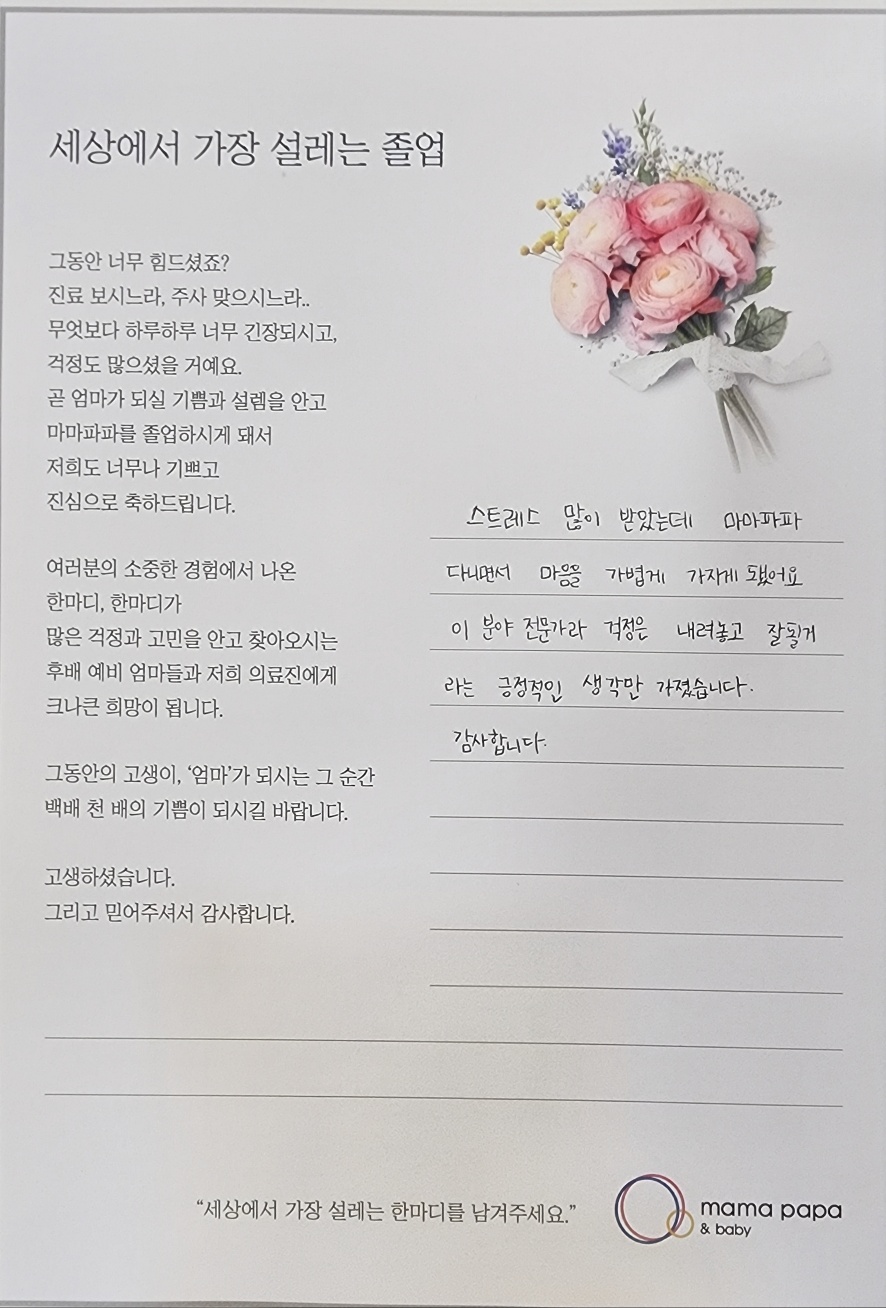 세상에서 가장 설레는 졸업
그동안 너무 힘드셨죠?
진료 보시느라, 주사 맞으시느라..
무엇보다 하루하루 너무 긴장되시고,
걱정도 많으셨을 거예요.
곧 엄마가 되실 기쁨과 설렘을 안고
마마파파를 졸업하시게 돼서
저희도 너무나 기쁘고
진심으로 축하드립니다.
여러분의 소중한 경험에서 나온
한마디, 한마디가
많은 걱정과 고민을 안고 찾아오시는
후배 예비 엄마들과 저희 의료진에게
크나큰 희망이 됩니다.
그동안의 고생이, ‘엄마’가 되시는 그 순간
백배 천 배의 기쁨이 되시길 바랍니다.
고생하셨습니다.
그리고 믿어주셔서 감사합니다.
스트레스 많이 받았는데 마마파파
다니면서 마음을 가볍게 가지게 됐어요
이 분야 전문가라 걱정은 내려놓고 잘될거
라는 긍정적인 생각만 가졌습니다.
감사합니다.
“세상에서 가장 설레는 한마디를 남겨주세요.”
mama papa
& baby